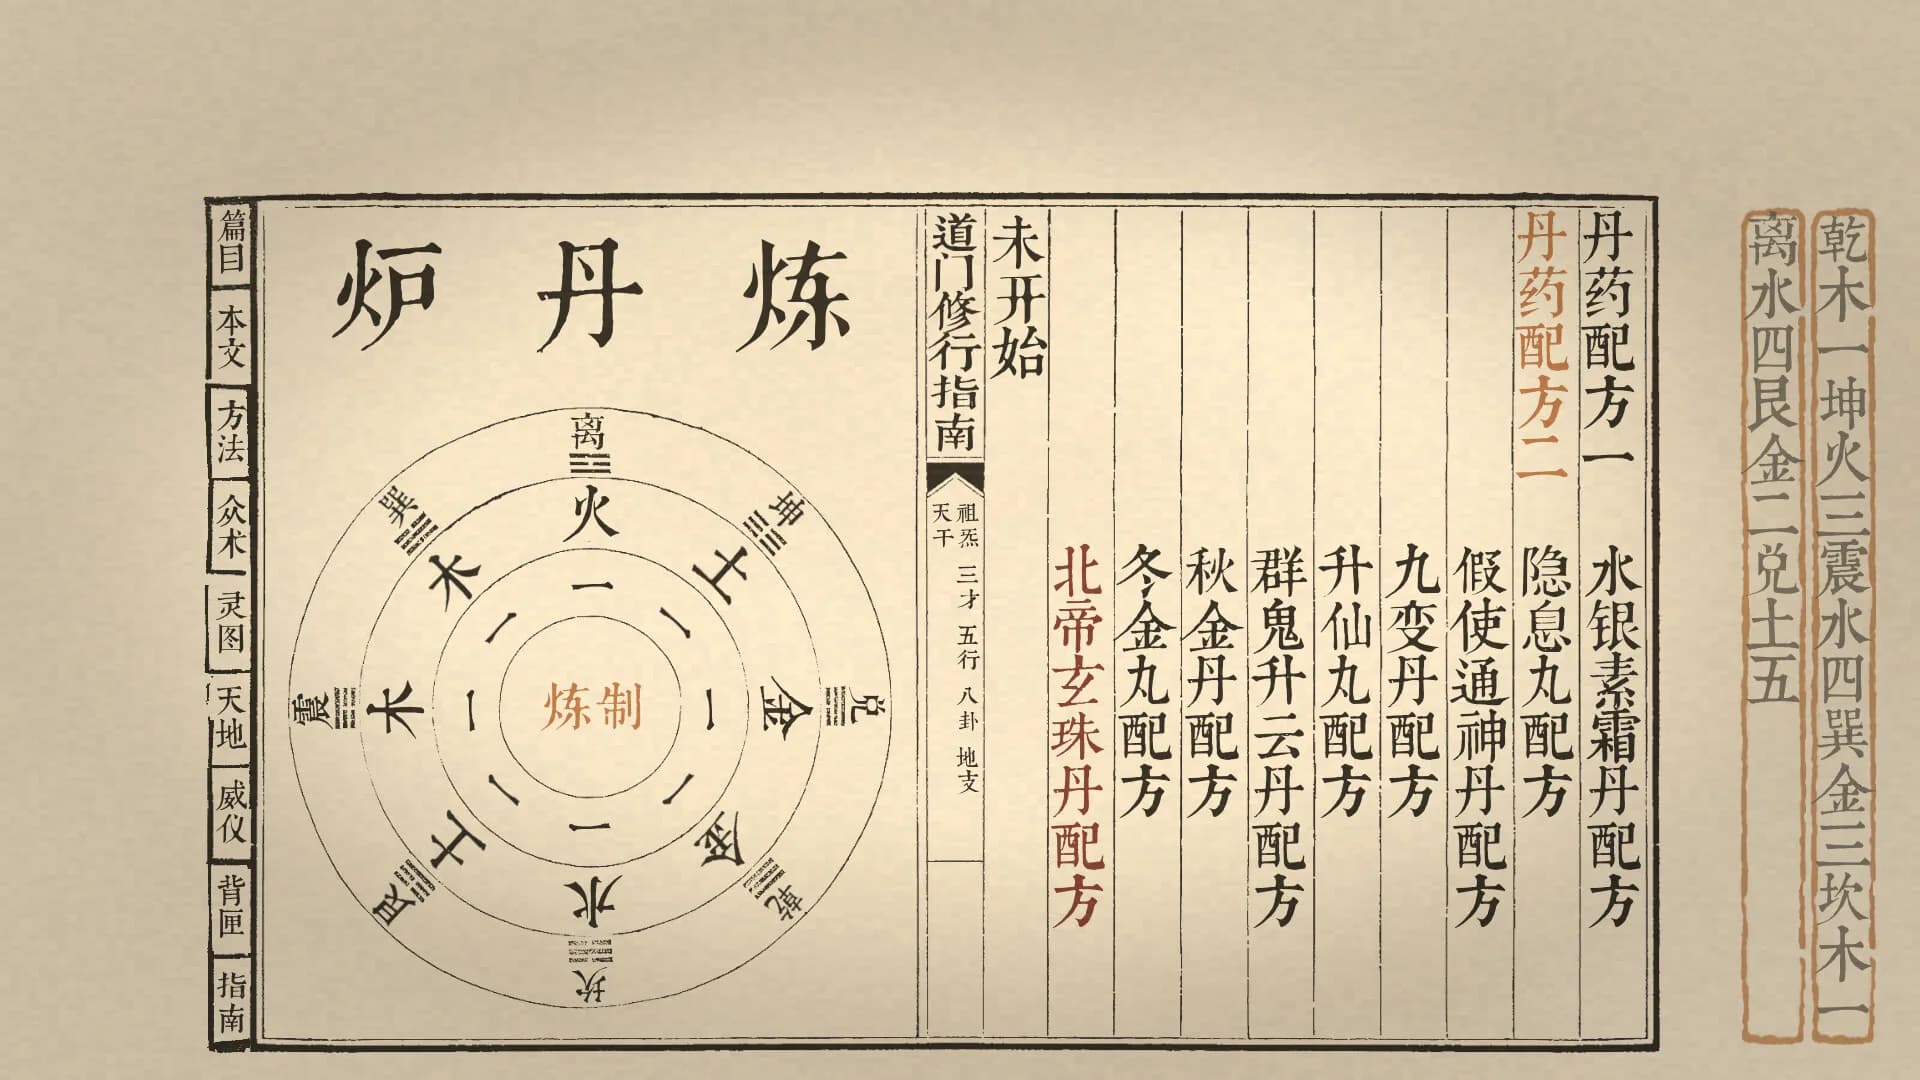 乾木一坤火三震水四巽金三坎木一
离水四艮金二兑土五
丹药配方一
丹药配方二
水银素霜丹配方
隐息丸配方
假使通神丹配方
九变丹配方
升仙丸配方
群鬼升云丹配方
秋金丹配方
冬金丸配方
北帝玄珠丹配方
未开始
道门修行指南
祖炁 三才 五行 八卦 地支
天干
炼丹炉
离
坤
兑
乾
坎
艮
震
巽
火
土
金
金
水
土
木
木
一
一
一
一
一
一
一
一
炼制
篇目
本文
方法
众术
灵图
天地
威仪
背匣
指南